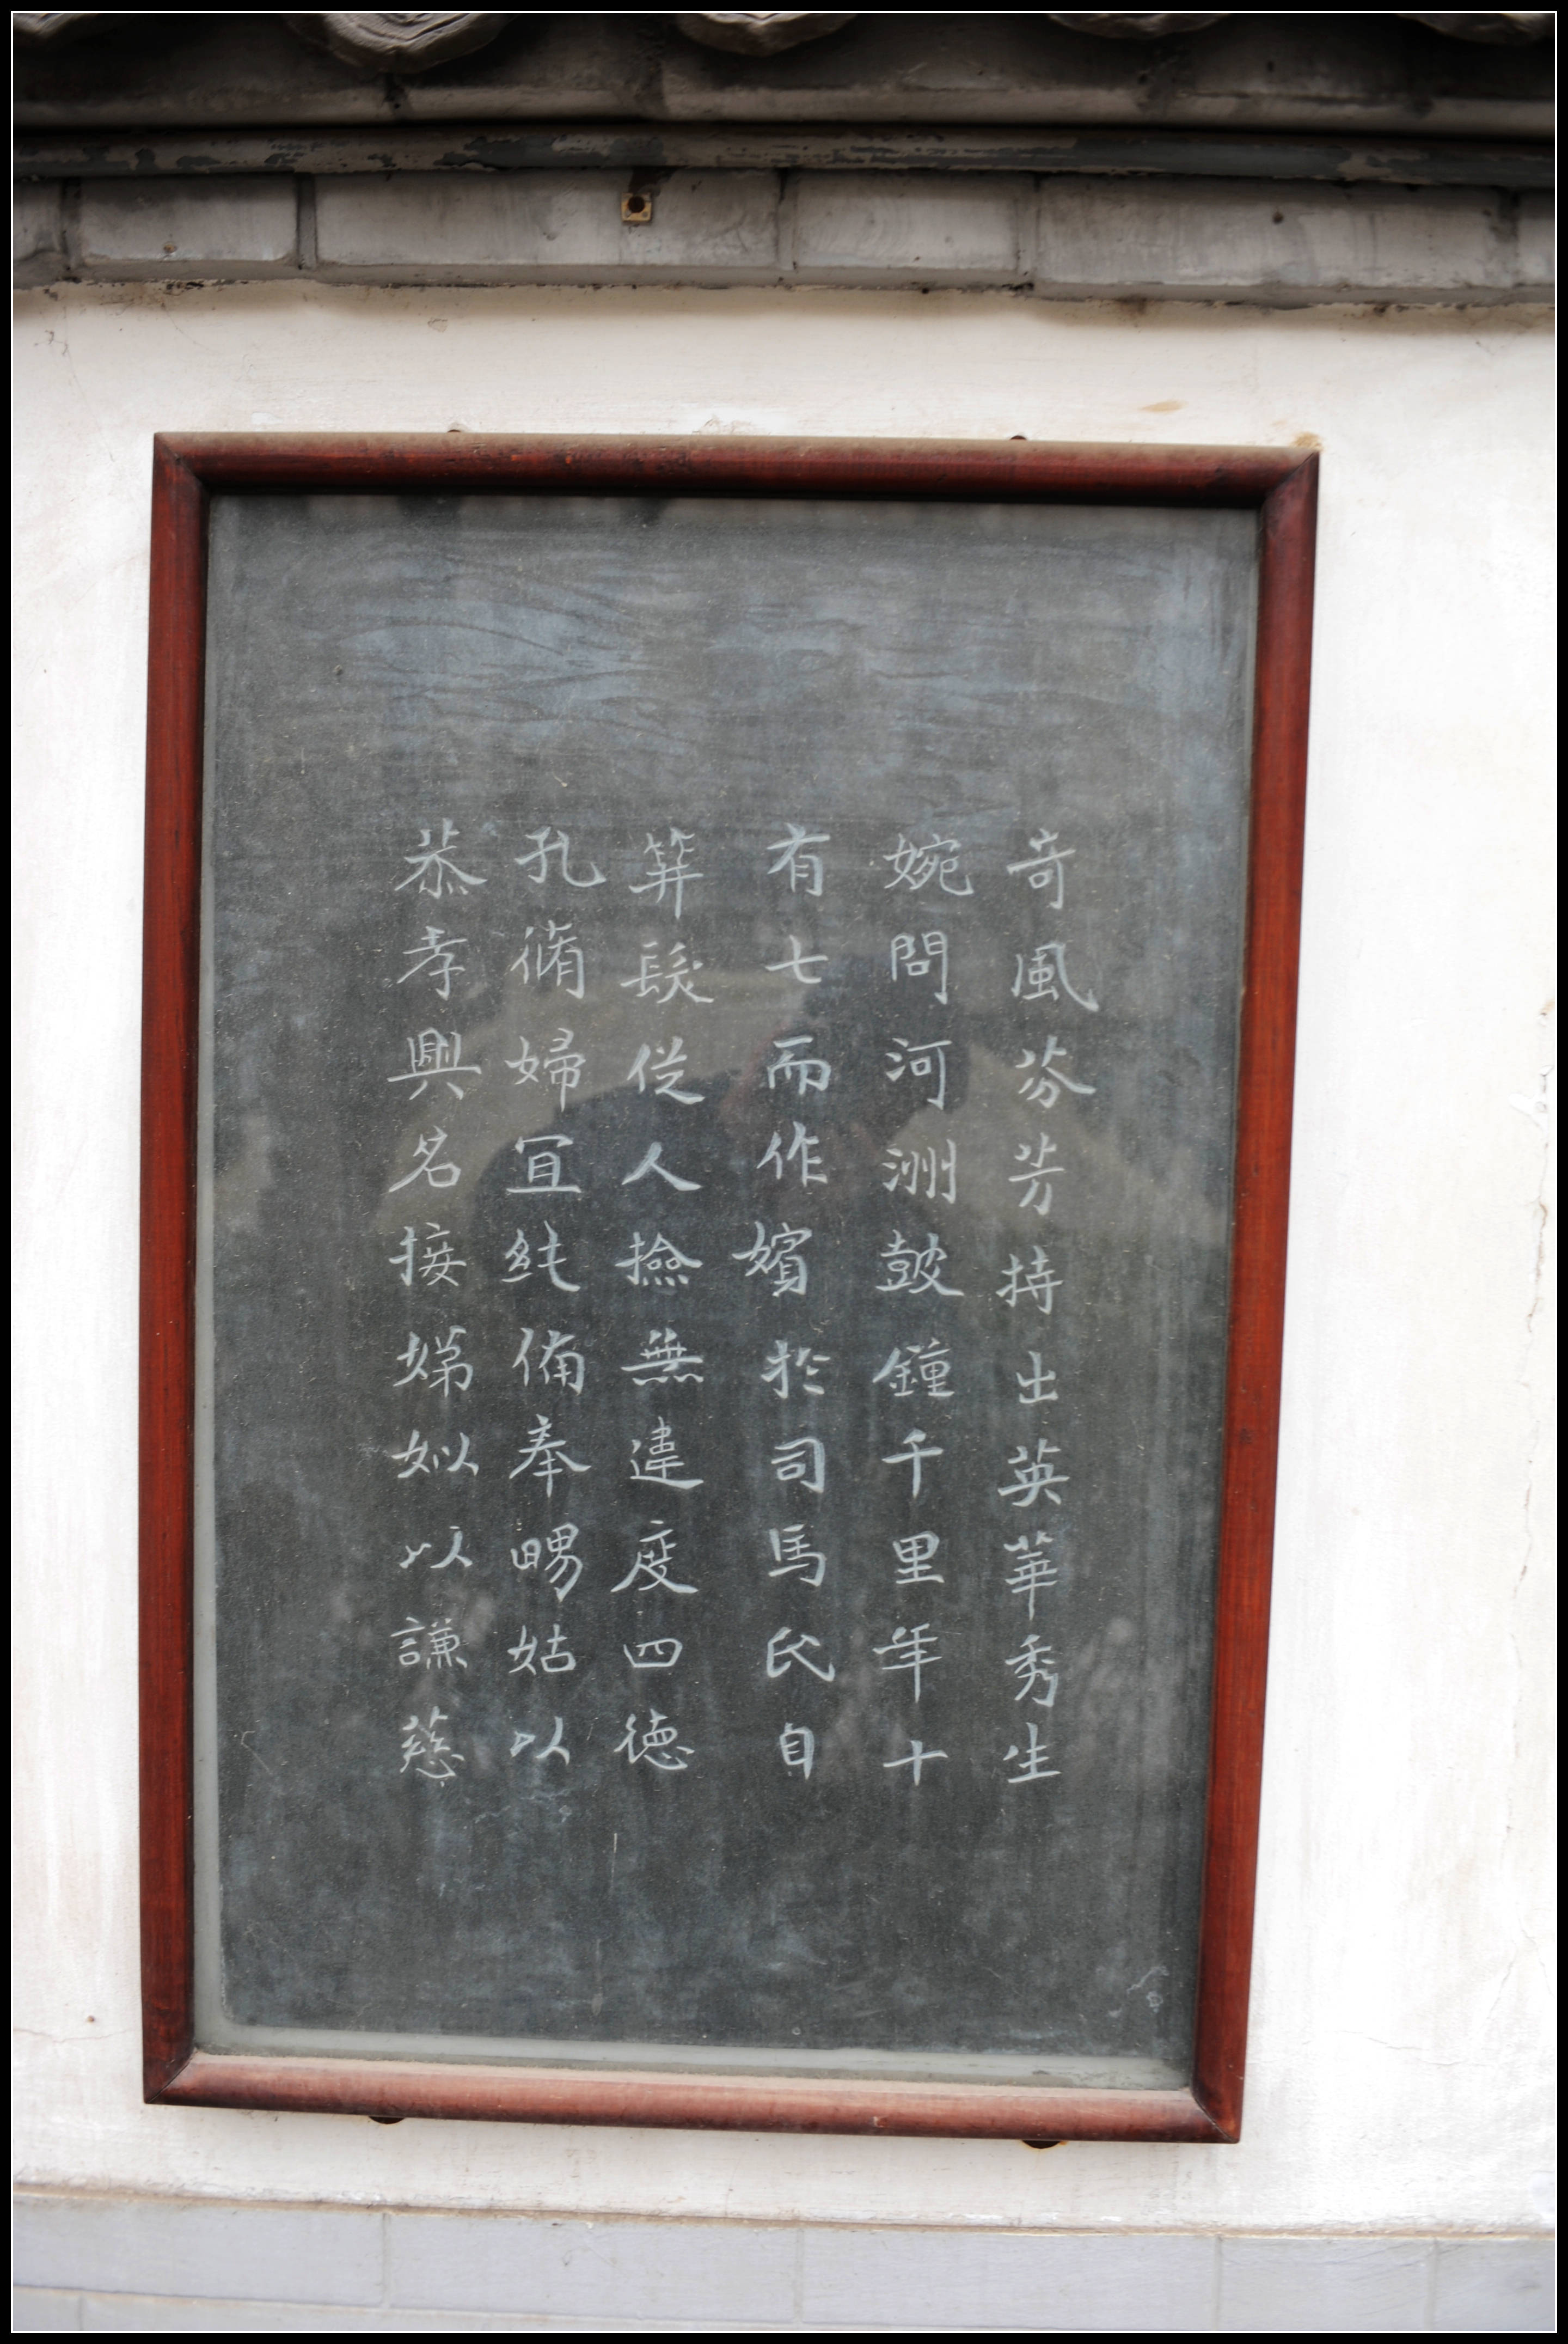 奇風芬芳持出英華秀生
婉問河洲鼓鐘千里年十
有七而作嬪於司馬氏自
筓髮從人撿無違度四德
孔脩婦宜純備奉甥姑以
恭孝興名接娣姒以謙慈